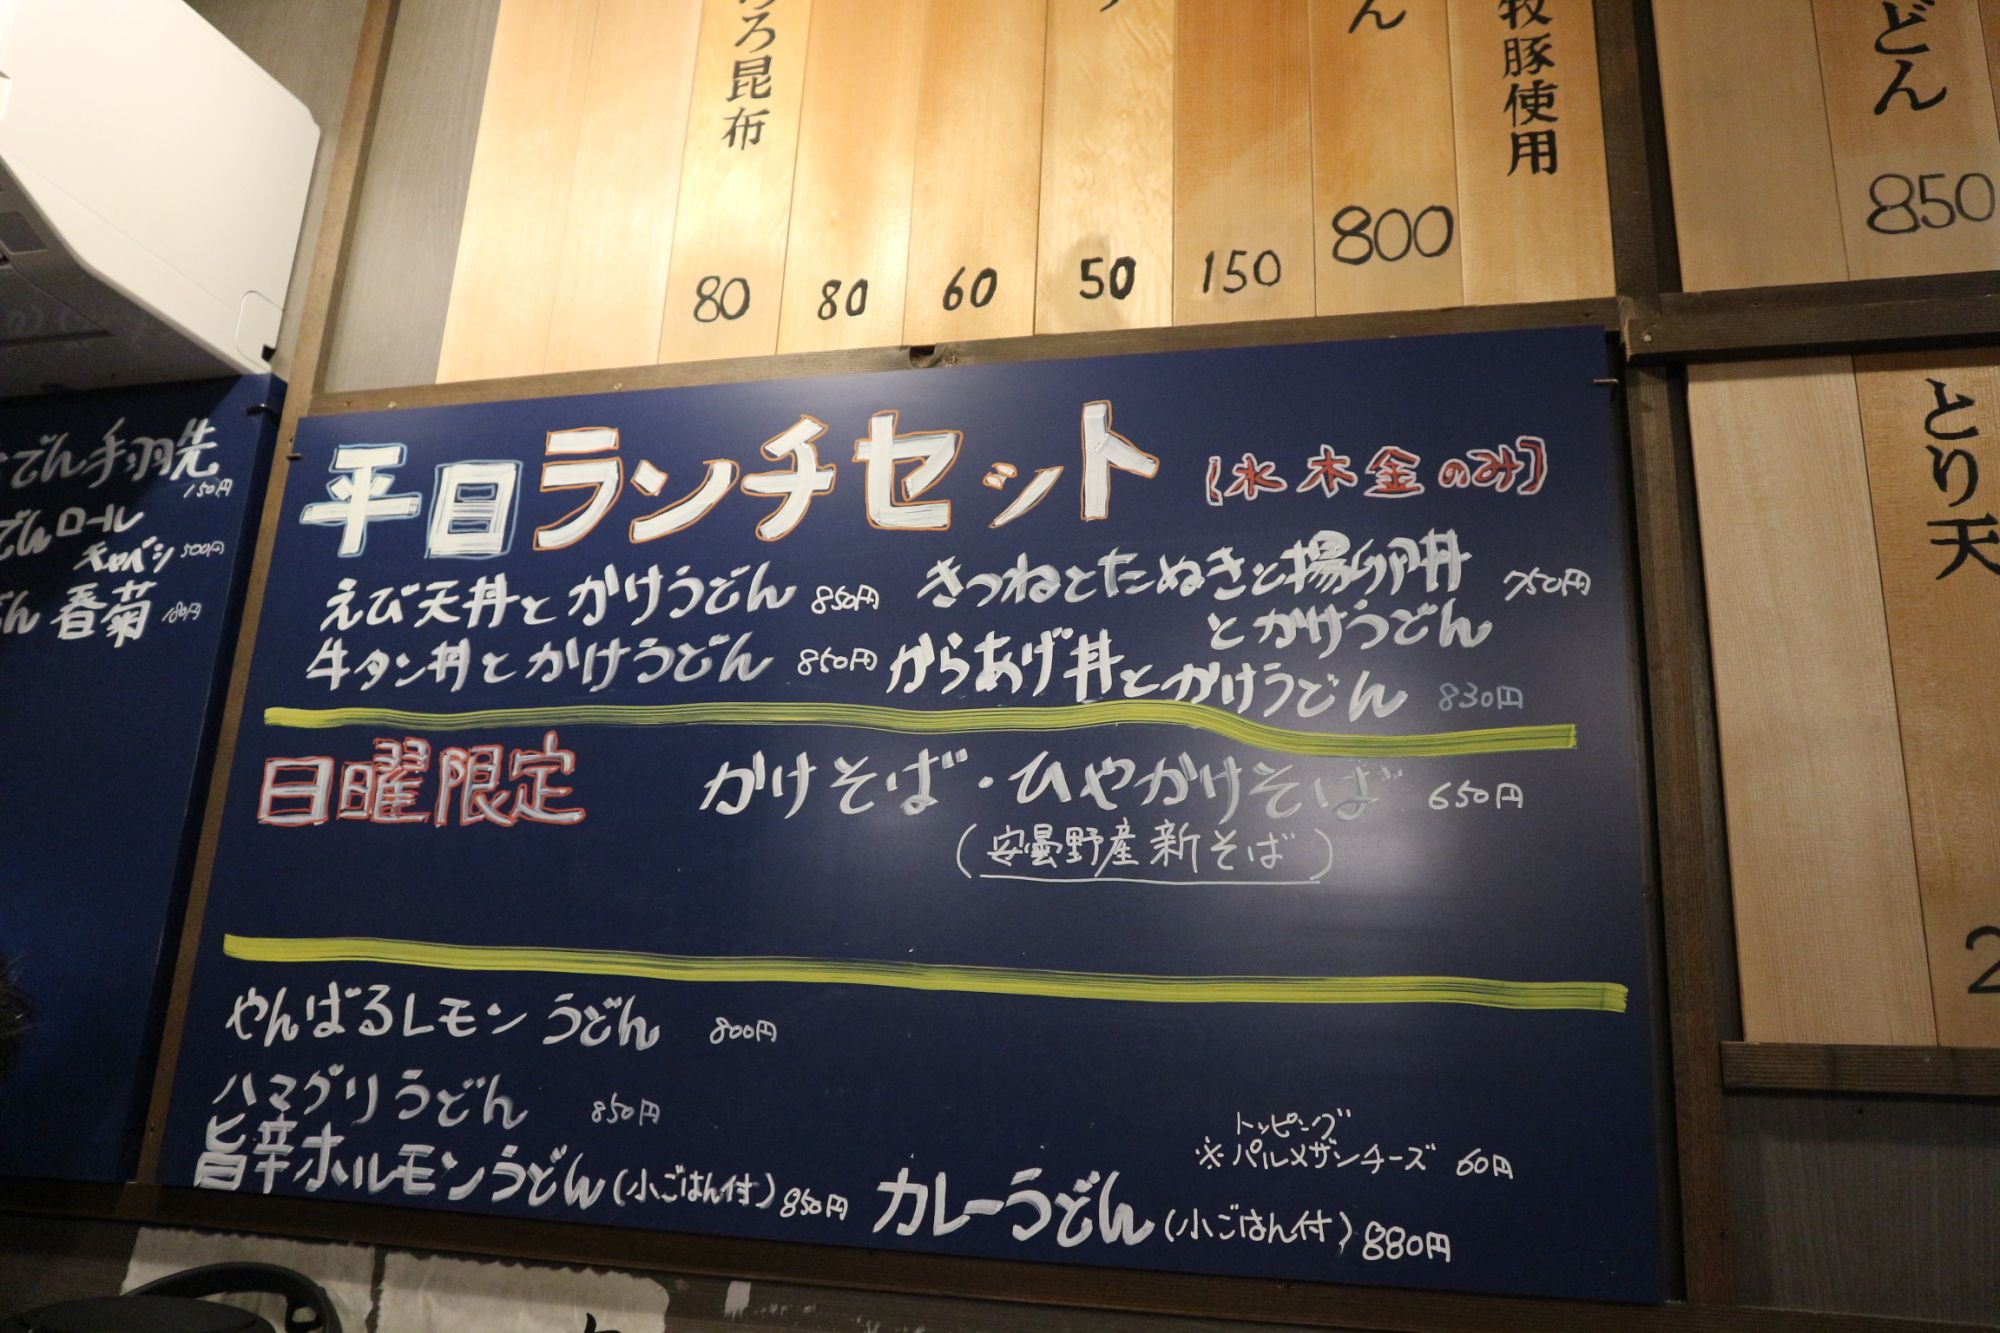 ろ昆布
80
80
60
50
150
ん
800
牧豚使用
どん
850
とり天
でん手羽先
150円
でんロール
キャベツ 500円
ん 春菊 180円
平日ランチセット [水木金のみ]
えび天丼とかけうどん 850円
牛タン丼とかけうどん 850円
きつねとたぬきと揚げ卵丼
とかけうどん 750円
からあげ丼とかけうどん 830円
日曜限定
かけそば・ひやかけそば 650円
(安曇野産新そば)
やんばるレモンうどん 800円
ハマグリうどん 850円
旨辛ホルモンうどん(小ごはん付) 850円
トッピング
※パルメザンチーズ 60円
カレーうどん(小ごはん付) 880円